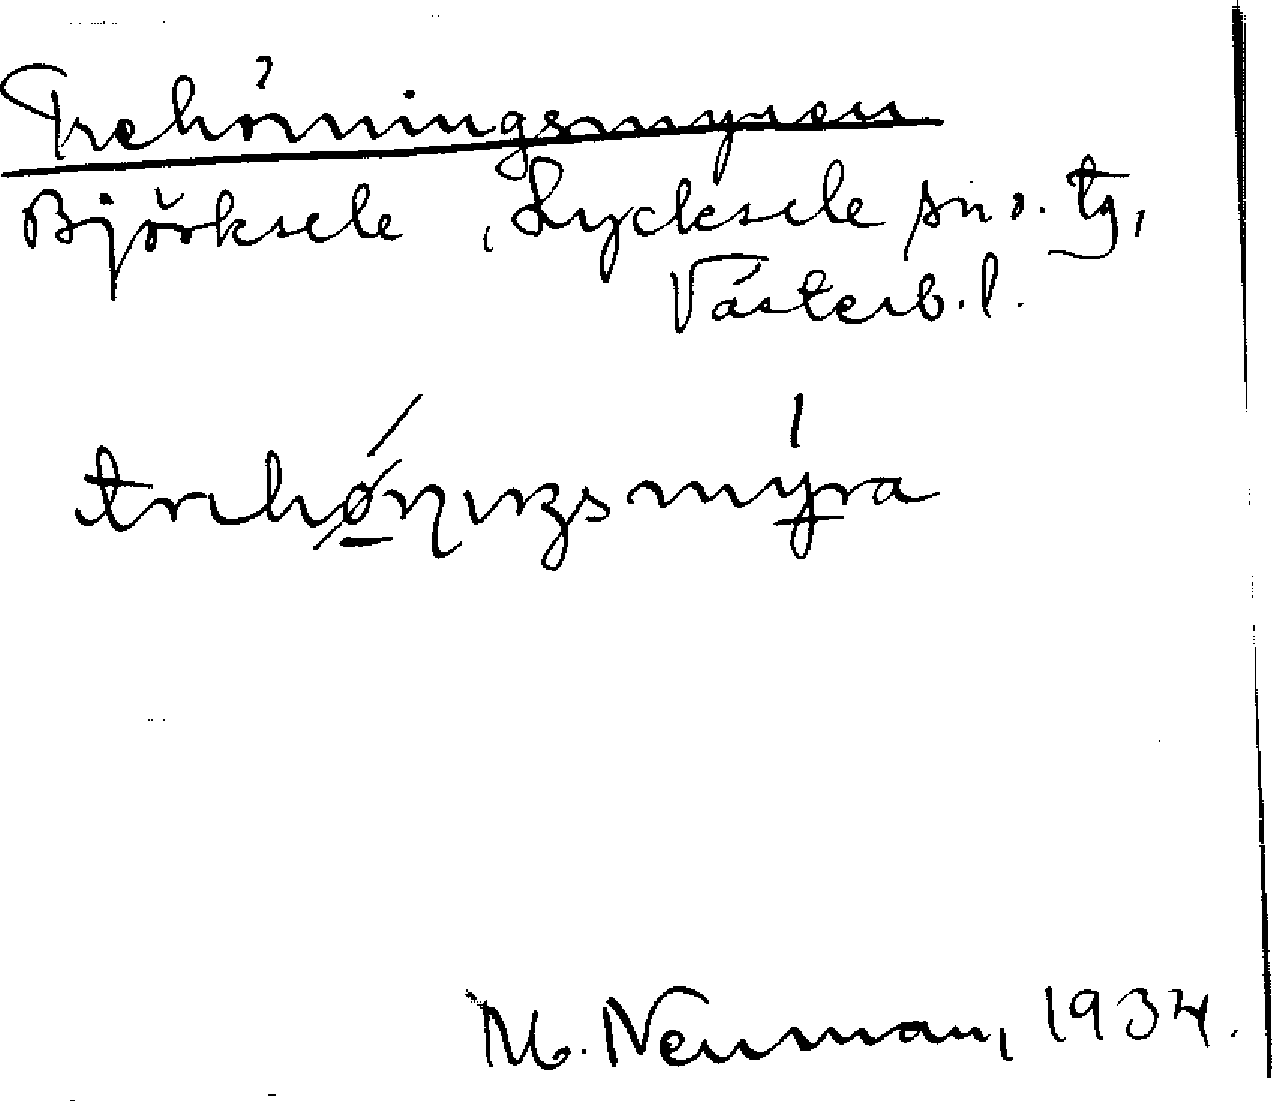 Trehörningsmyren
Björksele, Lycksele sn o. tg,
Västerb. l.
M. Neuman, 1934.